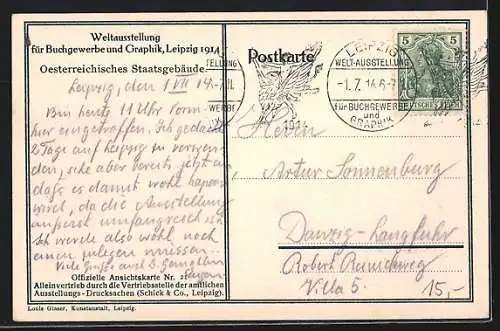 Weltausstellung
für Buchgewerbe und Graphik, Leipzig 1914
Oesterreichisches Staatsgebäude.
Postkarte
LEIPZIG
WELT-AUSSTELLUNG
-1.7.14.6-7
für BUCHGEWERBE
und
GRAPHIK
1914
5 5
DEUTSCHES REICH
Leipzig, den 1 VII 14.
Bin heute 11 Uhr Vorm.
hier eingetroffen. Ich gedachte
2 Tage auf Leipzig zu verwen-
den, sehe aber bereits jetzt ein,
daß es damit wohl hapern
wird, da die Ausstellung
äusserst umfangreich ist.
Ich werde also wohl noch
einen zulegen müssen.
Viele Grüße auch
Herrn
Artur Sonnenburg
Danzig-Langfuhr
Robert Reinickweg
Villa 5.
15,-
Offizielle Ansichtskarte Nr. 21
Alleinvertrieb durch die Vertriebsstelle der amtlichen
Ausstellungs-Drucksachen (Schick & Co., Leipzig).
Louis Glaser, Kunstanstalt, Leipzig.